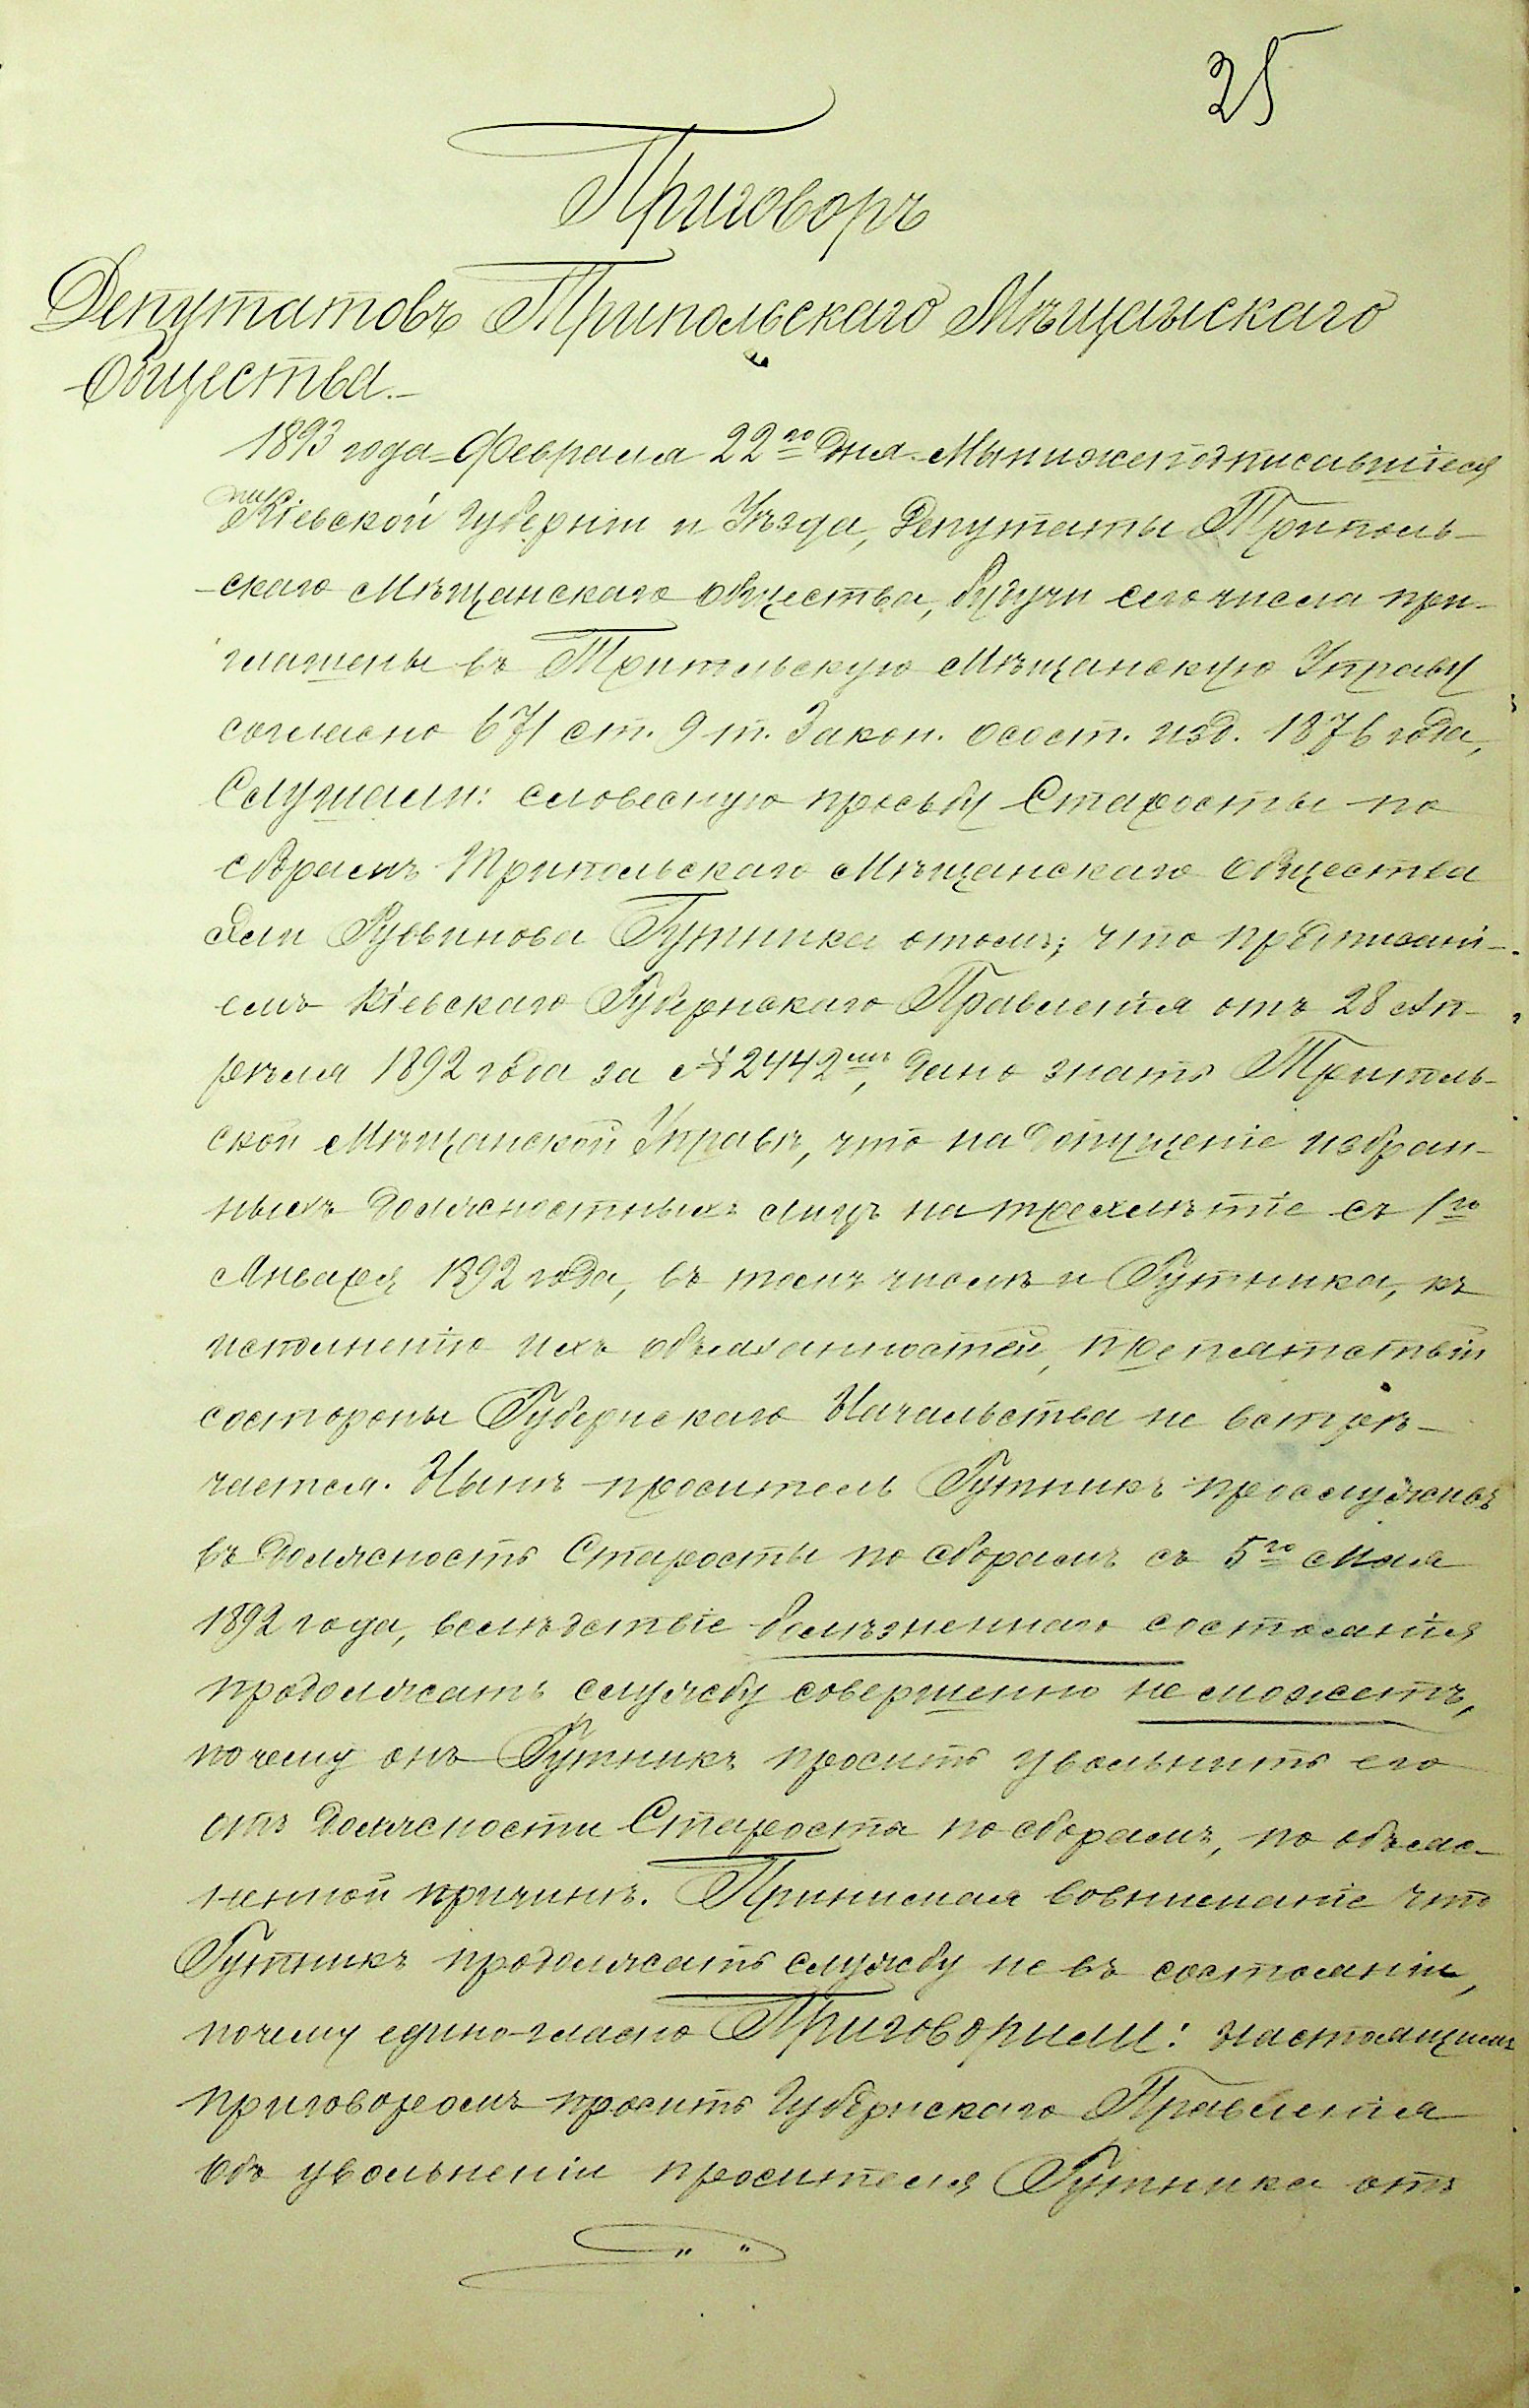 25
Приговоръ
Депутатовъ Трипольскаго Мѣщанскаго
Общества.-
1893 года Февраля 22го дня. Мы нижеподписавшіеся
Кіевской губерніи и Уѣзда, Депутаты Триполь-
-скаго Мѣщанскаго общества, будучи сего числа при-
глашены въ Трипольскую Мѣщанскую Управу
согласно 671 ст. 9 т. Закон. о сост. изд. 1876 года,
Слушали: словесную просьбу Старосты по
сборамъ Трипольскаго Мѣщанскаго Общества
Рувинова Гутника о томъ; что предписані-
емъ Кіевскаго Губернскаго Правленія отъ 28 Ап-
рѣля 1892 года за № 2442мъ, дано знать Триполь-
ской Мѣщанской Управѣ, что на допущеніе избран-
ныхъ должностныхъ лицъ на трехлѣтіе съ 1го
Января 1892 года, въ томъ числѣ и Гутника, къ
исполненію ихъ обязанностей, препятствій
состороны Губернскаго Начальства не встрѣ-
чается. Нынѣ проситель Гутникъ прослуживъ
въ должность Старосты по сборамъ съ 5го Мая
1892 года, вслѣдствіе болѣзненнаго состоянія
продолжать службу совершенно не можетъ,
почему онъ Гутникъ проситъ увольнить его
отъ должности Староста по сборамъ, по объяс-
ненной причинѣ. Принимая вовниманіе что
Гутникъ продолжать службу не въ состояніи,
почему едино-гласно Приговорили: настоящимъ
приговоромъ просить Губернскаго Правленія
объ увольненіи просителя Гутника отъ